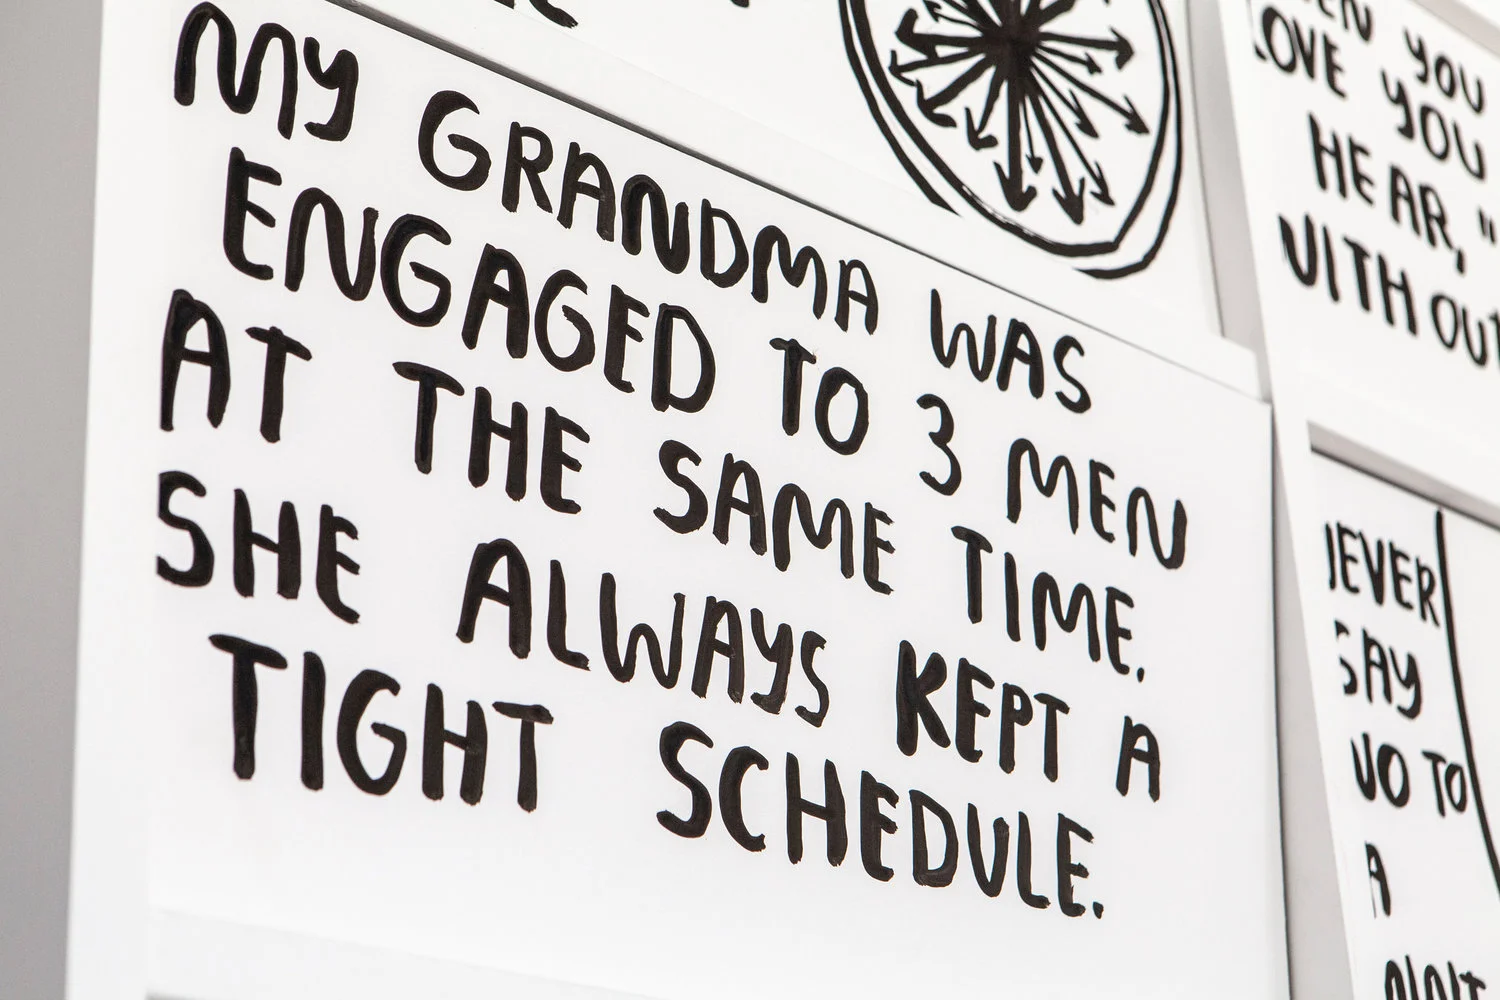 MY GRANDMA WAS
ENGAGED TO 3 MEN
AT THE SAME TIME.
SHE ALWAYS KEPT A
TIGHT SCHEDULE.
YOU
LOVE YOU
HEAR, "
WITHOUT
SAY
NO TO
A